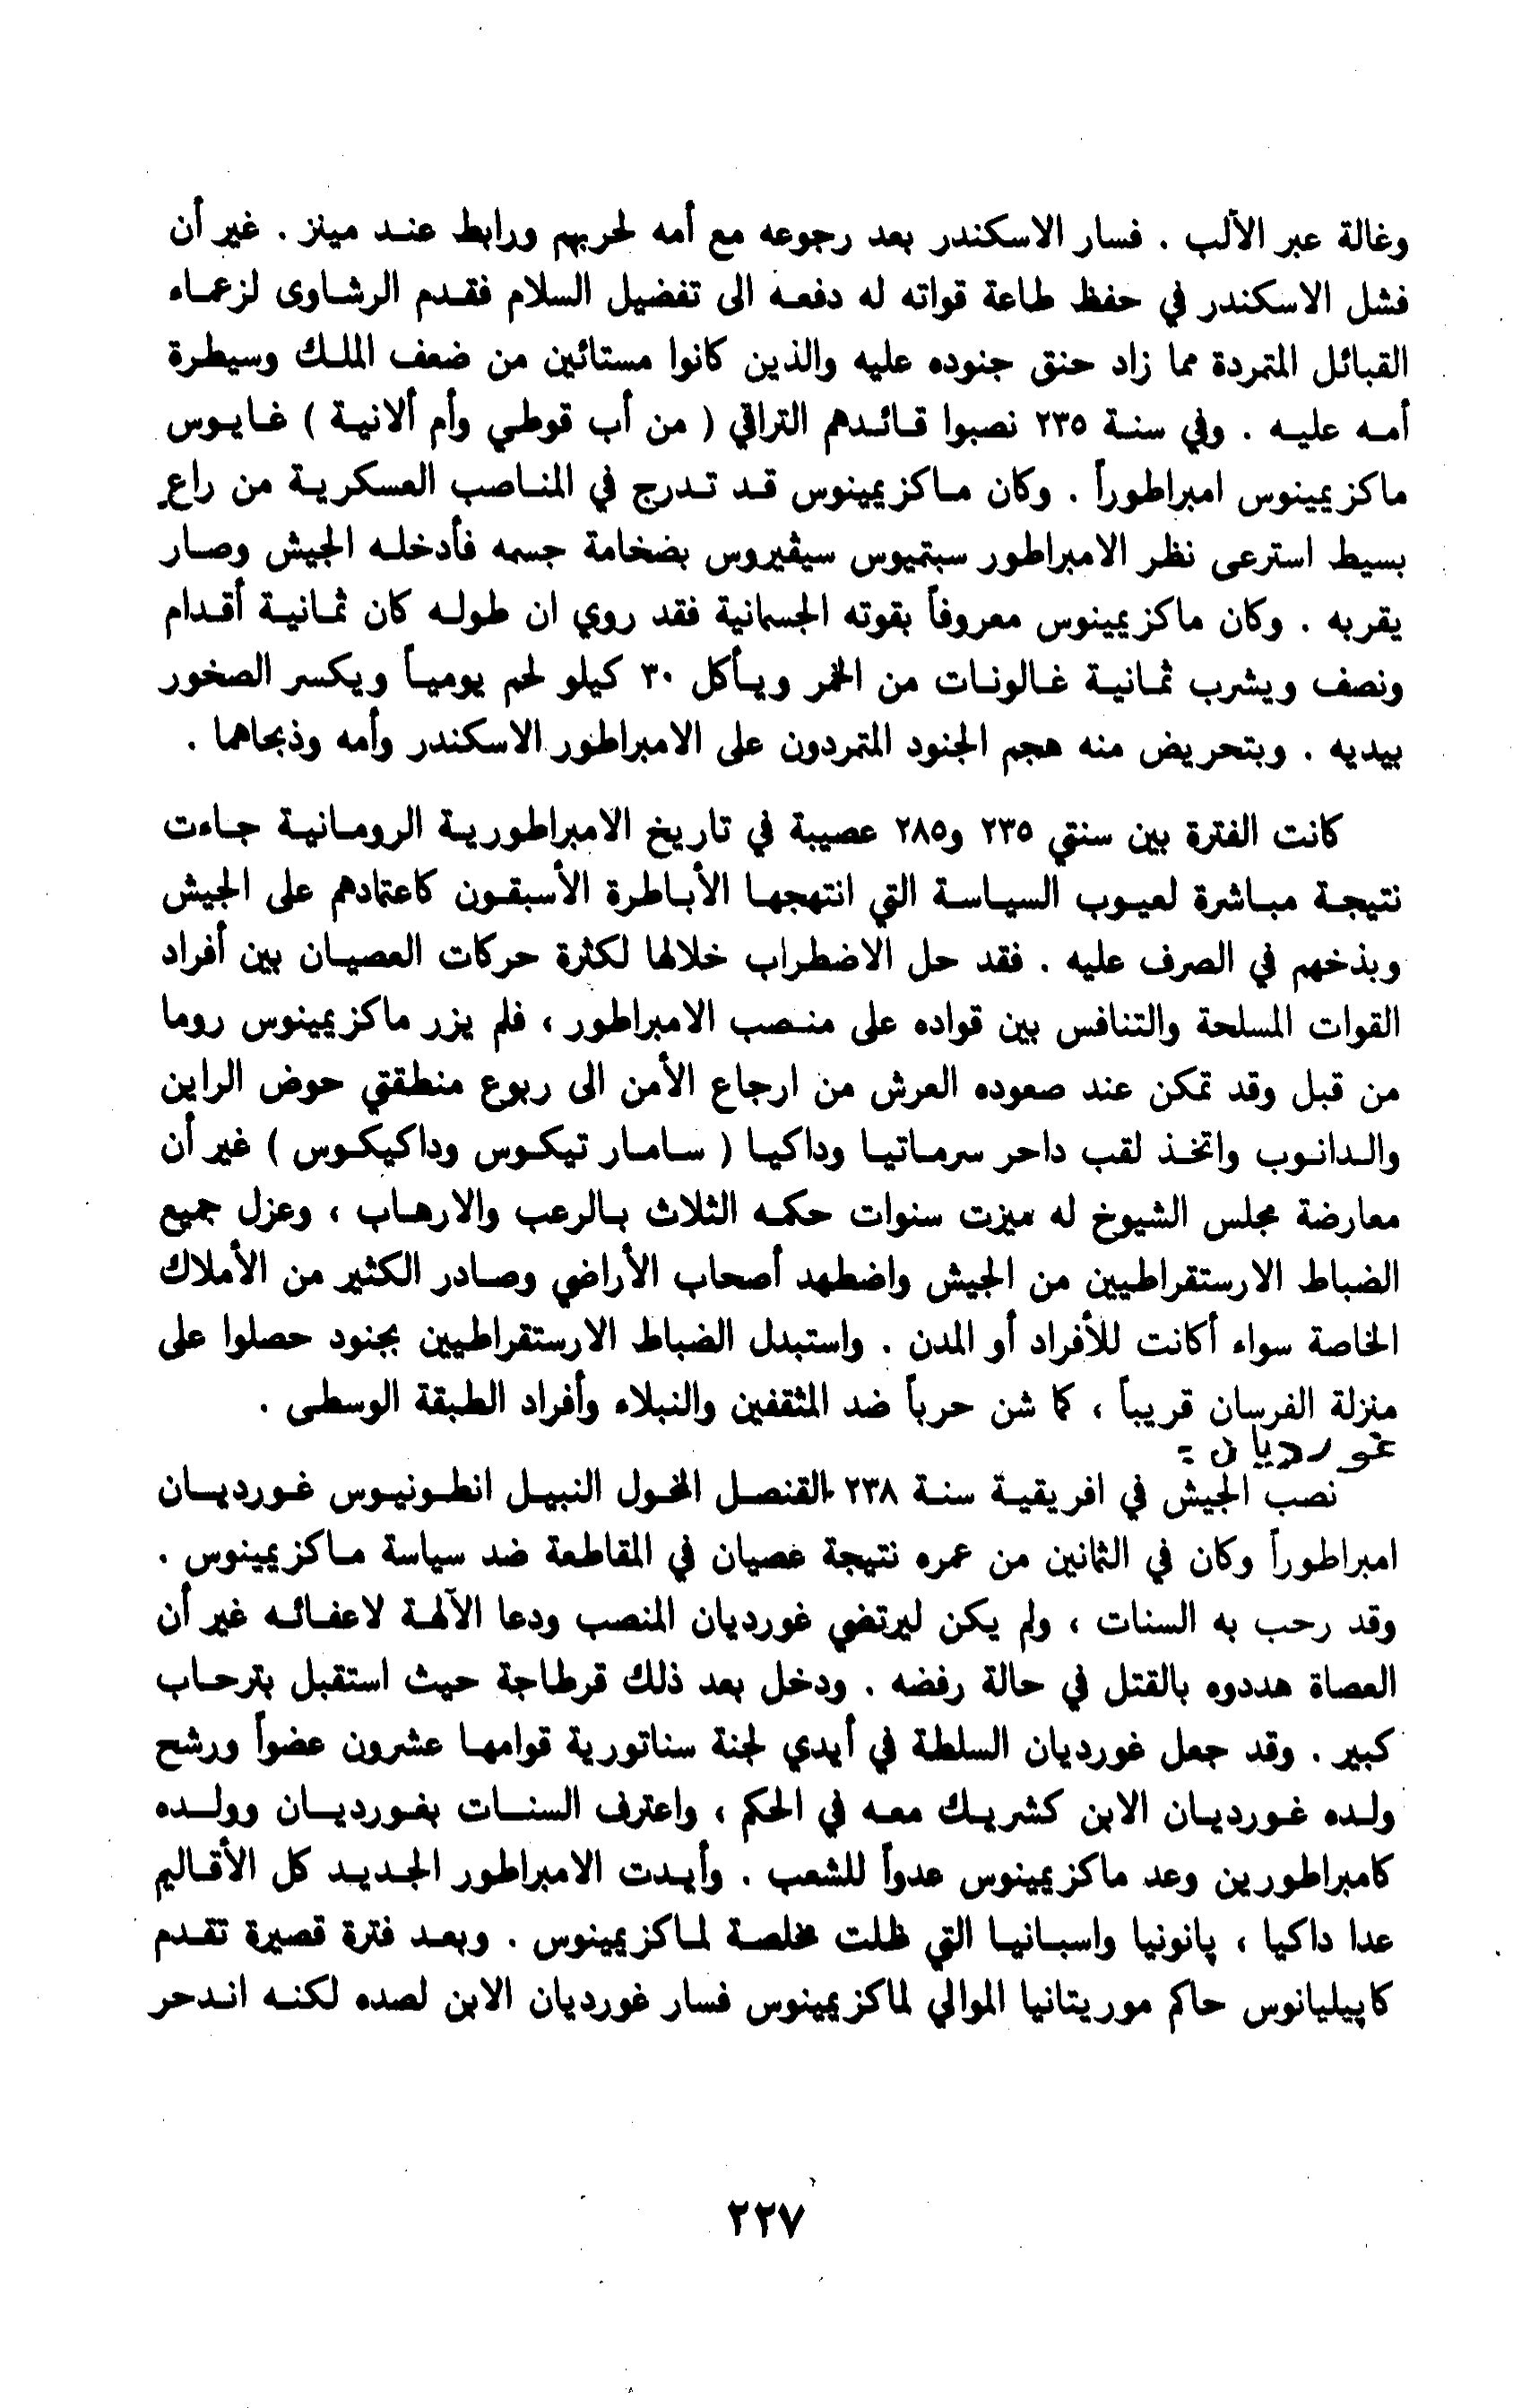 وغالة عبر الألب . فسار الاسكندر بعد رجوعه مع أمه لحربهم ورابط عند مينز . غير أن
فشل الاسكندر في حفظ طاعة قواته له دفعه الى تفضيل السلام فقدم الرشاوى لزعماء
القبائل المتمردة مما زاد حنق جنوده عليه والذين كانوا مستائين من ضعف الملك وسيطرة
أمه عليه . وفي سنة ٢٣٥ نصبوا قائدهم التراقي ( من أب قوطي وأم ألانية ) غايوس
ماكزيمينوس امبراطوراً . وكان ماكزيمينوس قد تدرج في المناصب العسكرية من راعٍ
بسيط استرعى نظر الامبراطور سبتميوس سيڤيروس بضخامة جسمه فأدخله الجيش وصار
يقربه . وكان ماكزيمينوس معروفاً بقوته الجسمانية فقد روي ان طوله كان ثمانية أقدام
ونصف ويشرب ثمانية غالونات من الخمر ويأكل ٣٠ كيلو لحم يومياً ويكسر الصخور
بيديه . وبتحريض منه هجم الجنود المتمردون على الامبراطور الاسكندر وأمه وذبحاهما .
كانت الفترة بين سنتي ٢٣٥ و٢٨٥ عصيبة في تاريخ الامبراطورية الرومانية جاءت
نتيجة مباشرة لعيوب السياسة التي انتهجها الأباطرة الأسبقون كاعتمادهم على الجيش
وبذخهم في الصرف عليه . فقد حل الاضطراب خلالها لكثرة حركات العصيان بين أفراد
القوات المسلحة والتنافس بين قواده على منصب الامبراطور ، فلم يزر ماكزيمينوس روما
من قبل وقد تمكن عند صعوده العرش من ارجاع الأمن الى ربوع منطقتي حوض الراين
والدانوب واتخذ لقب داحر سرماتيا وداكيا ( سامار تيكوس وداكيكوس ) غير أن
معارضة مجلس الشيوخ له ميزت سنوات حكمه الثلاث بالرعب والارهاب ، وعزل جميع
الضباط الارستقراطيين من الجيش واضطهد أصحاب الأراضي وصادر الكثير من الأملاك
الخاصة سواء أكانت للأفراد أو المدن . واستبدل الضباط الارستقراطيين بجنود حصلوا على
منزلة الفرسان قريباً ، كما شن حرباً ضد المثقفين والنبلاء وأفراد الطبقة الوسطى .
غورديان :
نصب الجيش في افريقية سنة ٢٣٨ القنصل المخول النبيل انطونيوس غورديان
امبراطوراً وكان في الثمانين من عمره نتيجة عصيان في المقاطعة ضد سياسة ماكزيمينوس .
وقد رحب به السنات ، ولم يكن ليرتضي غورديان المنصب ودعا الآلهة لاعفائه غير أن
العصاة هددوه بالقتل في حالة رفضه . ودخل بعد ذلك قرطاجة حيث استقبل بترحاب
كبير . وقد جعل غورديان السلطة في أيدي لجنة سناتورية قوامها عشرون عضواً ورشح
ولده غورديان الابن كشريك معه في الحكم ، واعترف السنات بغورديان وولده
كامبراطورين وعد ماكزيمينوس عدواً للشعب . وأيدت الامبراطور الجديد كل الأقاليم
عدا داكيا ، پانونيا واسبانيا التي ظلت مخلصة لماكزيمينوس . وبعد فترة قصيرة تقدم
كاپيليانوس حاكم موريتانيا الموالي لماكزيمينوس فسار غورديان الابن لصده لكنه اندحر
٢٢٧